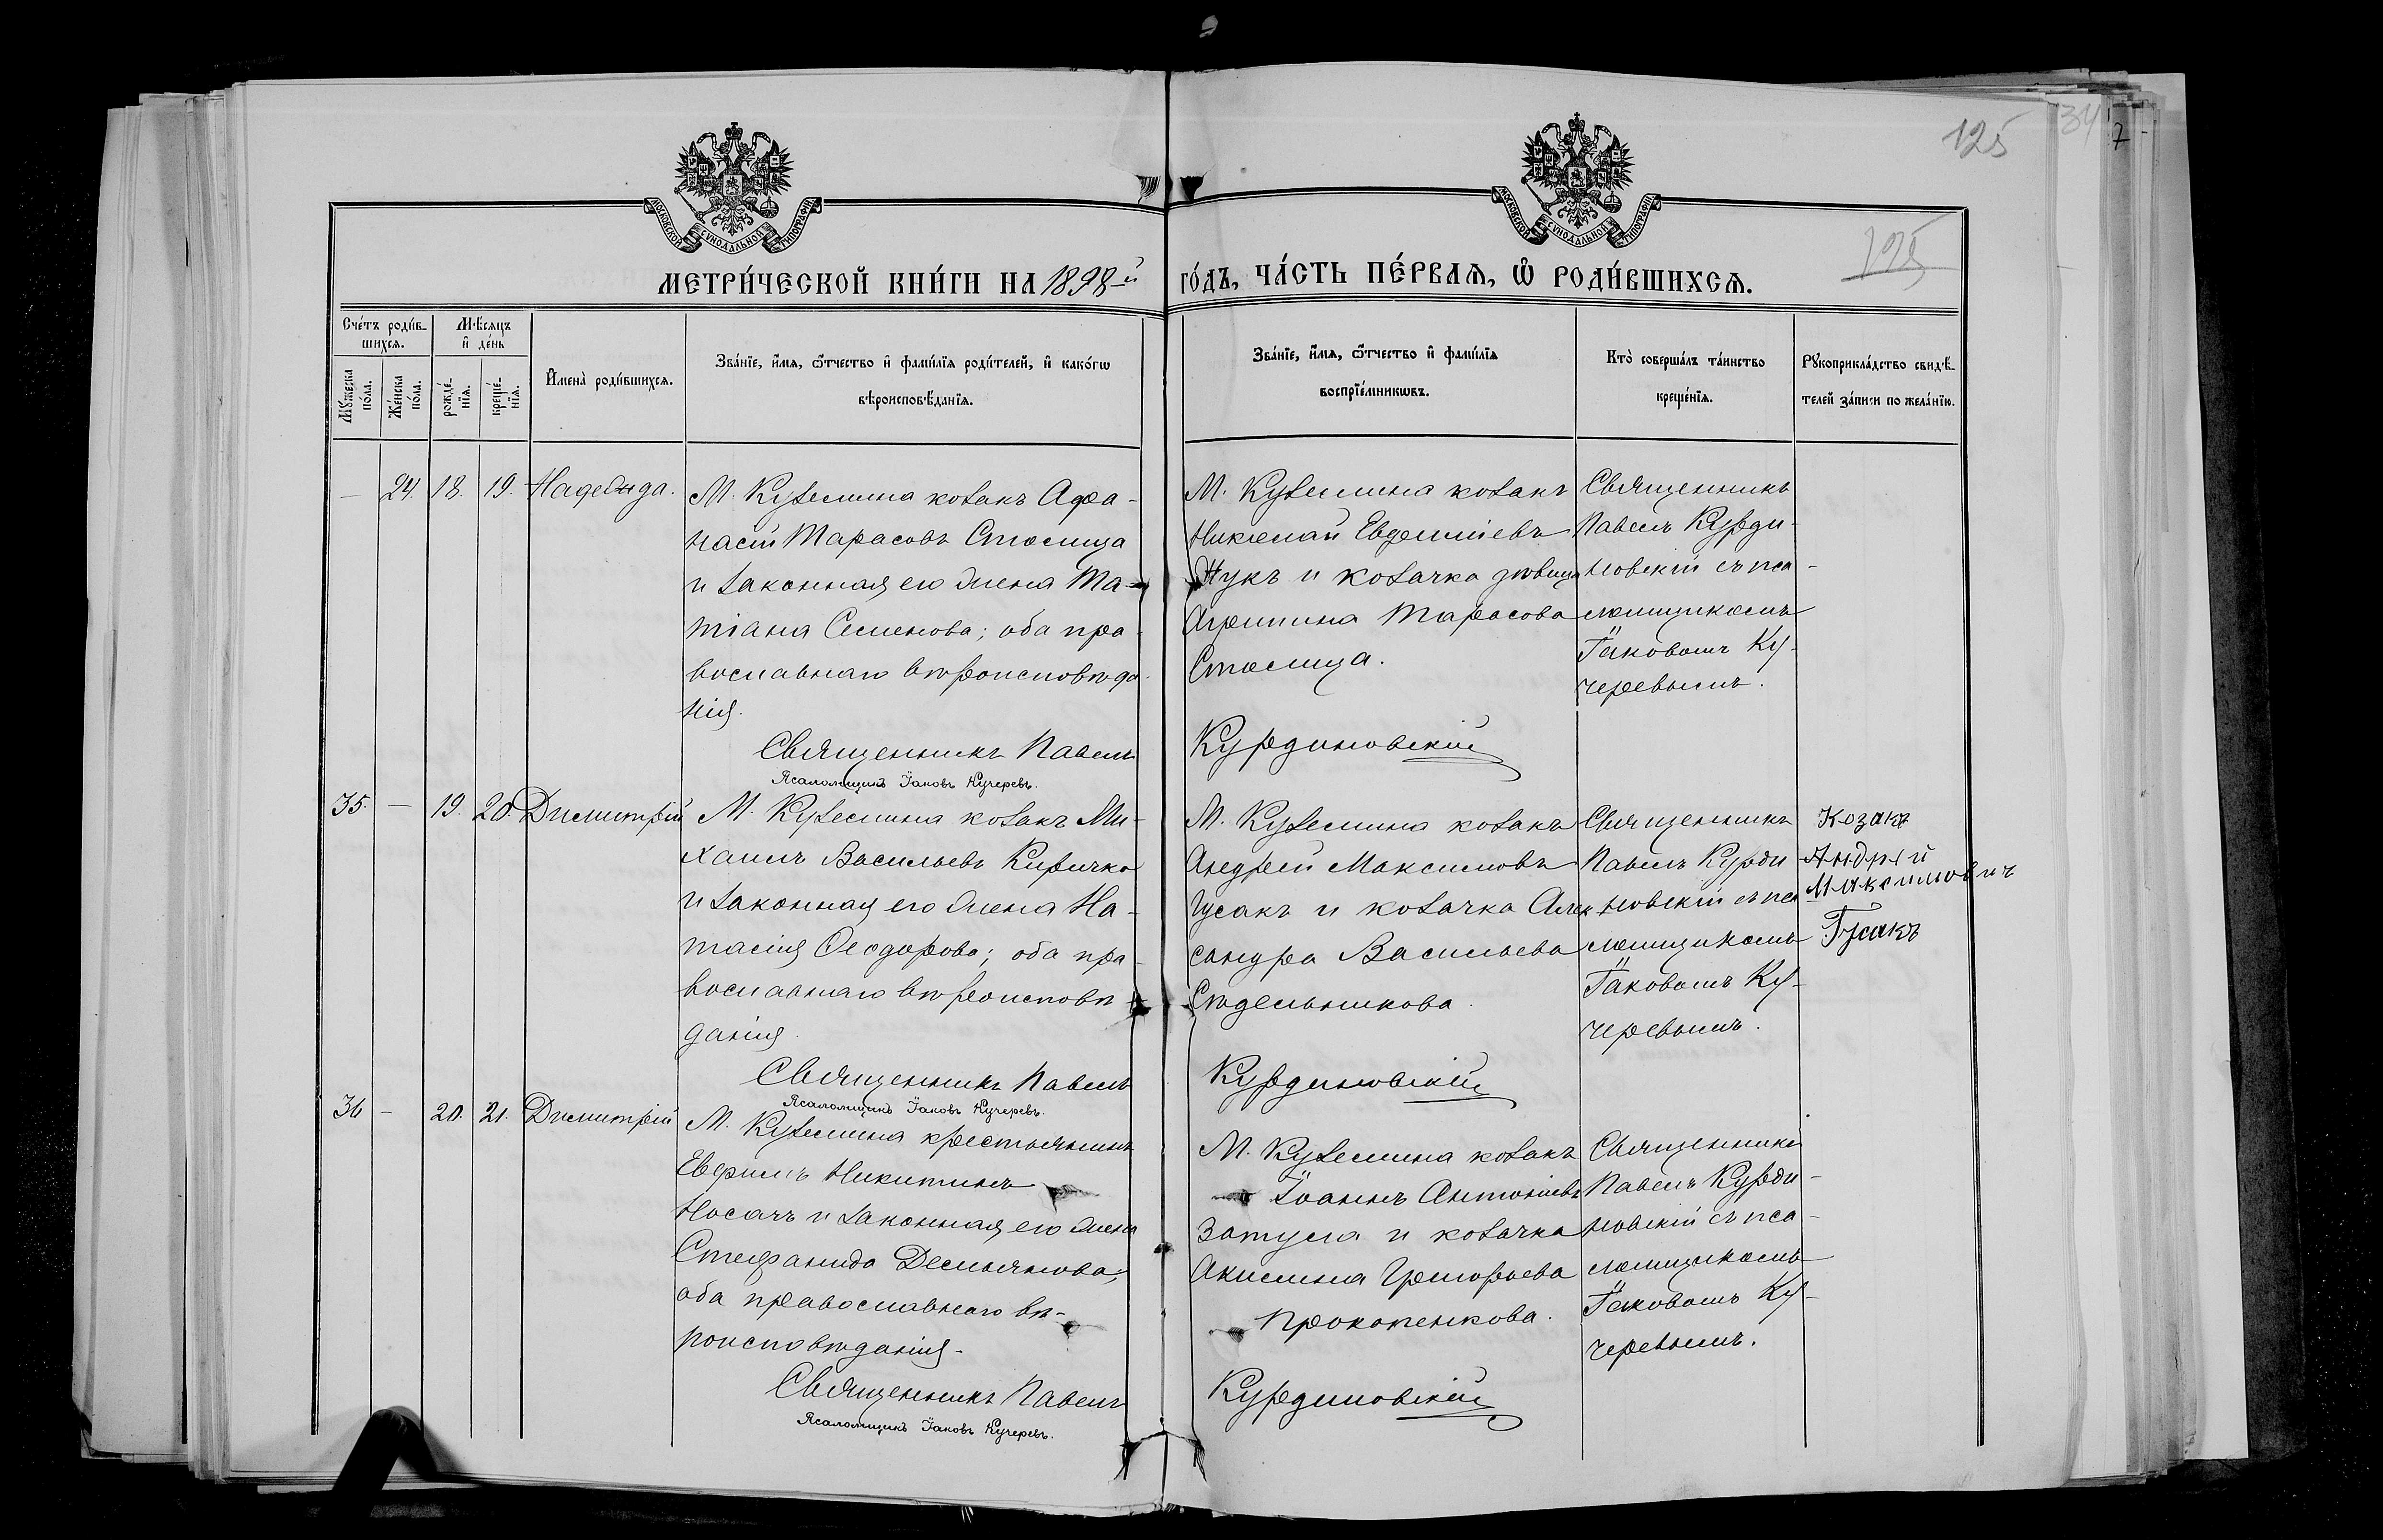 125
125
МОСКОВСКОЙ СУНОДАЛЬНОЙ ТИПОГРАФІИ
МОСКОВСКОЙ СУНОДАЛЬНОЙ ТИПОГРАФІИ
МЕТРИ́ЧЕСКОЙ КНИ́ГИ НА 1898-й го́дъ, ЧА́СТЬ ПЕ́РВАѦ, Ѡ РОДИ́ВШИХСѦ.
Сче́тъ роди́в-
шихсѧ.
Мꙋ́жеска по́ла.
Же́нска по́ла.
Мѣ́сѧцъ
и де́нь
рожде́-
нїѧ.
креще́-
нїѧ.
Имена̀ роди́вшихсѧ.
Зва́нїе, и́мѧ, ѻ́тчество и фами́лїѧ роди́телей, и како́гѡ
вѣроисповѣ́данїѧ.
Зва́нїе, и́мѧ, ѻ́тчество и фами́лїѧ
воспрїе́мникѡвъ.
Кто̀ соверша́лъ та́инство
креще́нїѧ.
Рꙋкоприкла́дство свидѣ́-
телей за́писи по жела́нїю.
— 24. 18. 19. Надежда.
М. Куземина козакъ Афа-
насій Тарасовъ Столица
и законная его жена Та-
тіана Семенова; оба пра-
вославнаго вѣроисповѣда-
нія.
Священникъ Павелъ Курдиновскій
Псаломщикъ Іаковъ Кучеревъ.
М. Куземина козакъ
Николай Евфиміевъ
Жукъ и козачка дѣвица
Агрипина Тарасова
Столица.
Священникъ
Павелъ Курди-
новскій съ пса-
ломщикомъ
Іаковомъ Ку-
черевымъ.
35. — 19. 20. Димитрій
М. Куземина козакъ Ми-
хаилъ Васильевъ Киричко
и законная его жена На-
талія Ѳеодорова; оба пра-
вославнаго вѣроисповѣ-
данія.
Священникъ Павелъ Курдиновскій
Псаломщикъ Іаковъ Кучеревъ.
М. Куземина козакъ
Андрей Максимовъ
Гусакъ и козачка Алек
сандра Васильева
Стдельникова.
Священникъ
Павелъ Курди
новскій съ пса
ломщикомъ
Іаковомъ Ку-
черевымъ.
Козакъ
Андрей
Максимович
Гусакъ
36 — 20. 21. Димитрій
М. Куземина крестьянинъ
Евфимъ Никитинъ
Носачъ и законная его жена
Стефанида Демьянова;
оба православнаго вѣ-
роисповѣданія.
Священникъ Павелъ Курдиновскій
Псаломщикъ Іаковъ Кучеревъ.
М. Куземина козакъ
Іоаннъ Антоніевъ
Затула и козачка
Акилина Григорьева
Прокопенкова.
Священникъ
Павелъ Курди-
новскій съ пса-
ломщикомъ
Іаковомъ Ку-
черевымъ.